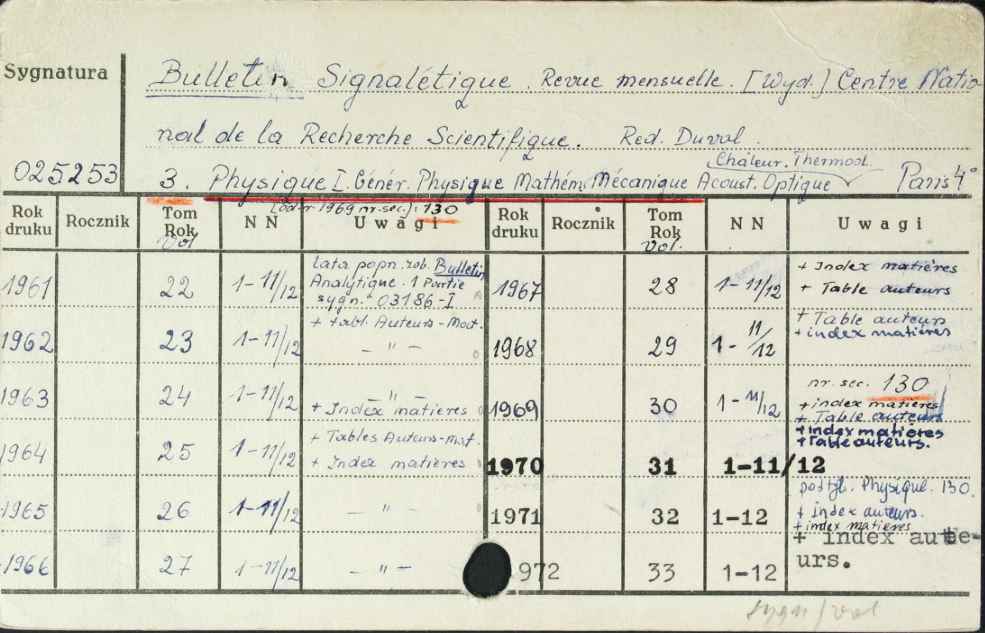 Sygnatura
Bulletin Signalétique. Revue mensuelle. [Wyd.] Centre Natio-
nal de la Recherche Scientifique. Red. Duval.
Chaleur. Thermod.
025253 3. Physique I. Génér. Physique Mathém. Mécanique Acoust. Optique Paris 4°
[od nr. 1969 nr. sec.): 130
Rok druku Rocznik Tom Rok Vol N N Uwagi Rok druku Rocznik Tom Rok Vol. N N Uwagi
1961 22 1-11/12 Lata popn. zob. Bulletin
Analytique. 1 Partie
sygn. 03186-I
1967 28 1-11/12 + Index matières
+ Table auteurs
1962 23 1-11/12 + tabl. Auteurs-Mat.
— " —
1968 29 1-11/12 + Table auteurs
+ index matières
1963 24 1-11/12 — " —
+ Index matières
1969 30 1-11/12 nr. sec. 130
+ index matières
+ Table auteurs
1964 25 1-11/12 + Tables Auteurs-Mat.
+ Index matières
1970 31 1-11/12 + Index matières
+ Table auteurs.
1965 26 1-11/12 — " —
1971 32 1-12 Physique. 130.
+ Index auteurs.
+ index matières
1966 27 1-11/12 — " —
972 33 1-12 + index aute-
urs.
sygn/vol